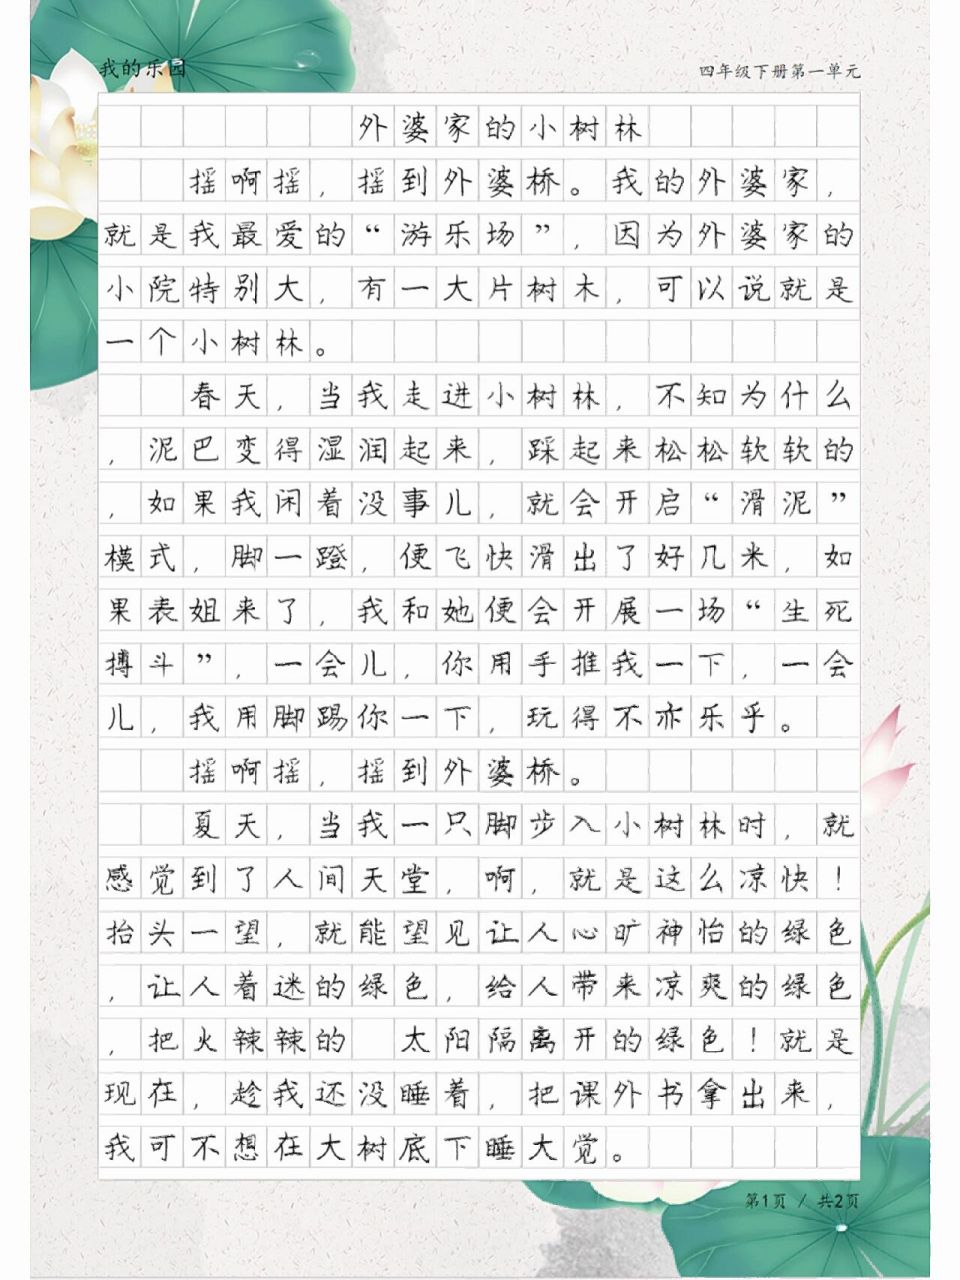 我的乐园
四年级下册第一单元
外婆家的小树林
摇啊摇，摇到外婆桥。我的外婆家，
就是我最爱的“游乐场”，因为外婆家的
小院特别大，有一大片树木，可以说就是
一个小树林。
春天，当我走进小树林，不知为什么
，泥巴变得湿润起来，踩起来松松软软的
，如果我闲着没事儿，就会开启“滑泥”
模式，脚一蹬，便飞快滑出了好几米，如
果表姐来了，我和她便会开展一场“生死
搏斗”，一会儿，你用手推我一下，一会
儿，我用脚踢你一下，玩得不亦乐乎。
摇啊摇，摇到外婆桥。
夏天，当我一只脚步入小树林时，就
感觉到了人间天堂，啊，就是这么凉快！
抬头一望，就能望见让人心旷神怡的绿色
，让人着迷的绿色，给人带来凉爽的绿色
，把火辣辣的 太阳隔离开的绿色！就是
现在，趁我还没睡着，把课外书拿出来，
我可不想在大树底下睡大觉。
第1页 / 共2页